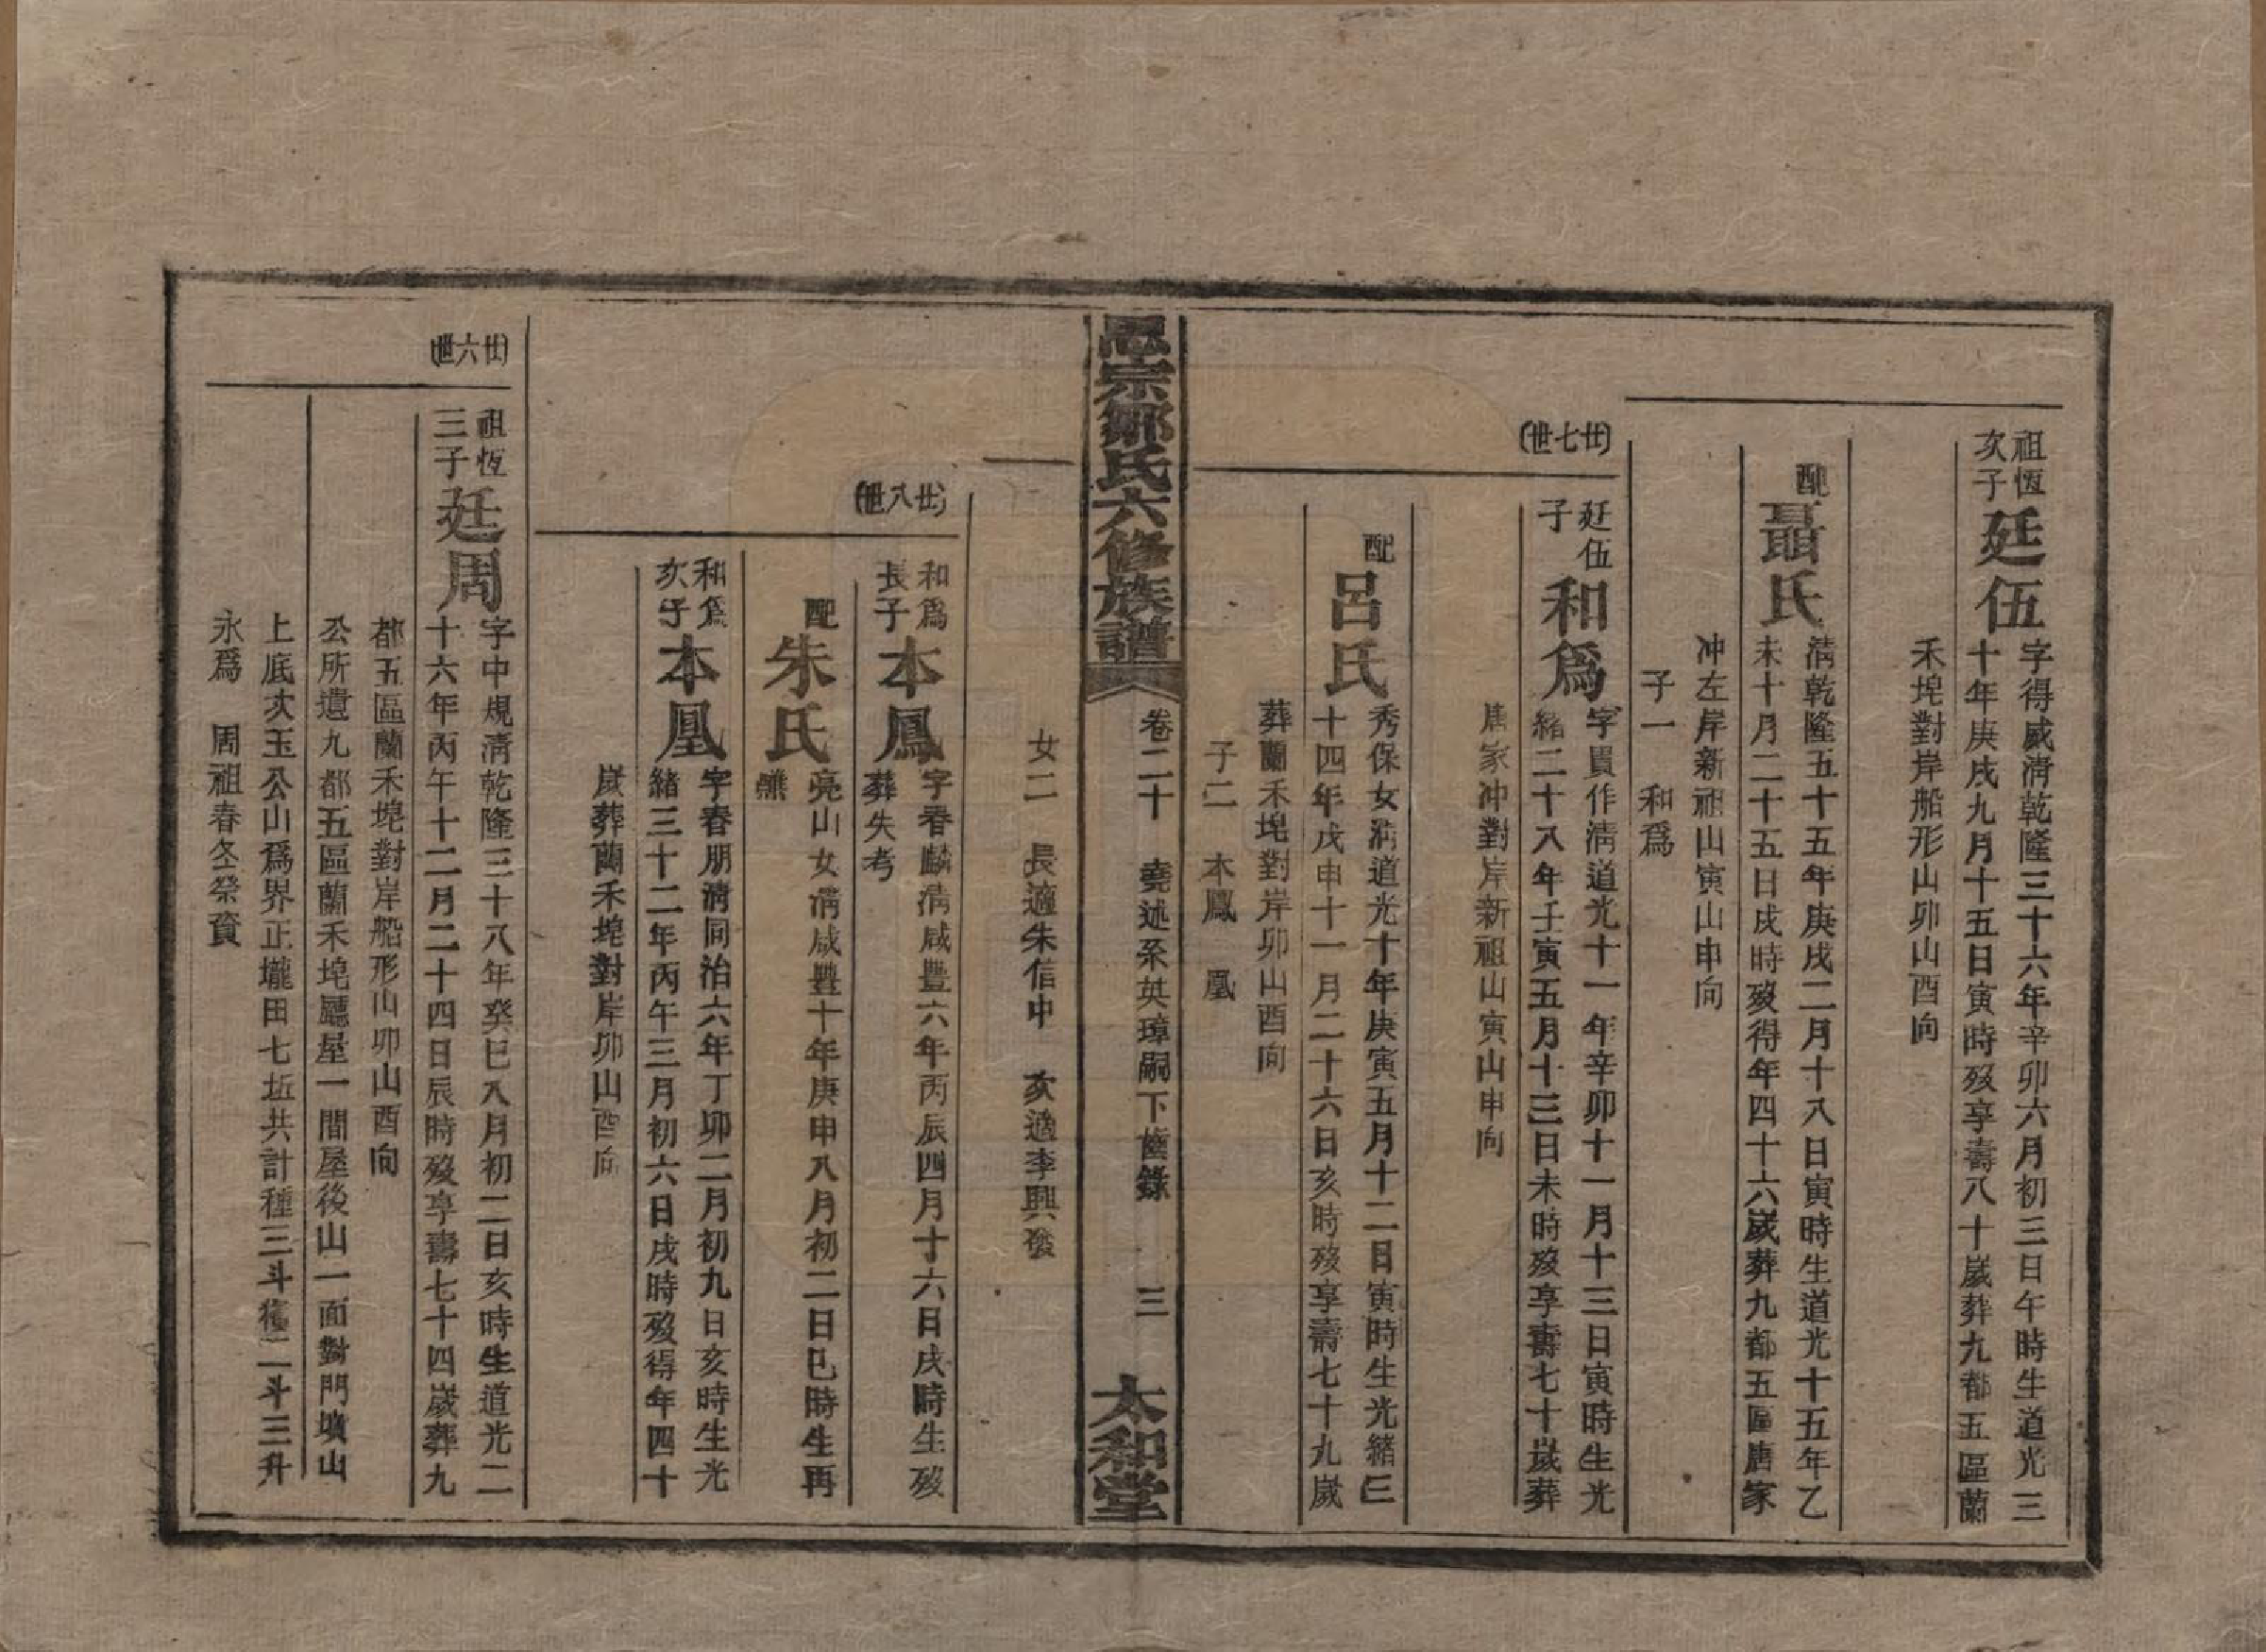 祖恆
次子
廷伍
字得威淸乾隆三十六年辛卯六月初三日午時生道光三
十年庚戌九月十五日寅時歿享壽八十嵗葬九都五區蘭
禾埦對岸船形山卯山酉向
配
聶氏
淸乾隆五十五年庚戌二月十八日寅時生道光十五年乙
未十月二十五日戌時歿得年四十六嵗葬九都五區唐家
冲左岸新祖山寅山申向
子一 和爲
(廿七世)
廷伍
子
和爲
字貫作淸道光十一年辛卯十一月十三日寅時生光
緒二十八年壬寅五月十三日未時歿享壽七十嵗葬
唐家冲對岸新祖山寅山申向
配
呂氏
秀保女淸道光十年庚寅五月十二日寅時生光緒三
十四年戊申十一月二十六日亥時歿享壽七十九嵗
葬蘭禾埦對岸卯山酉向
子二 本鳳 凰
思宗鄒氏六修族譜
卷二十 堯述系英璋嗣下齒錄 三
太和堂
女二 長適朱信中 次適李興發
(廿八世)
和爲
長子
本鳳
字春麟淸咸豐六年丙辰四月十六日戌時生歿
葬失考
配
朱氏
亮山女淸咸豐十年庚申八月初二日巳時生再
醮
和爲
次子
本凰
字春朋淸同治六年丁卯二月初九日亥時生光
緒三十二年丙午三月初六日戌時歿得年四十
嵗葬蘭禾埦對岸卯山酉向
(廿六世)
祖恆
三子
廷周
字中規淸乾隆三十八年癸巳八月初二日亥時生道光二
十六年丙午十二月二十四日辰時歿享壽七十四嵗葬九
都五區蘭禾埦對岸船形山卯山酉向
公所遺九都五區蘭禾埦廳屋一間屋後山一面對門墳山
上底次玉公山爲界正壠田七坵共計種三斗穫二斗三升
永爲 周祖春冬祭資